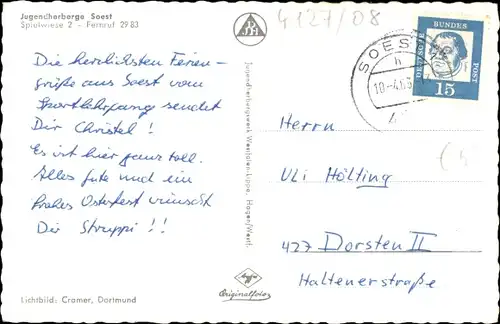 Jugendherberge Soest
Spielwiese 2 - Fernruf 29 83
4127/08
Die herzlichsten Ferien-
grüße aus Soest vom
Sportlehrgang sendet
Dir Christel!
Es ist hier ganz toll.
Alles gute und ein
frohes Osterfest wünscht
Dir Struppi!!
Lichtbild: Cramer, Dortmund
Jugendherbergswerk Westfalen-Lippe, Hagen/Westf.
Agfa
Originalfoto
SOEST
h
10.-4.63
DEUTSCHE BUNDESPOST
15
Herrn
Uli Hölting
427 Dorsten II
Halternerstraße